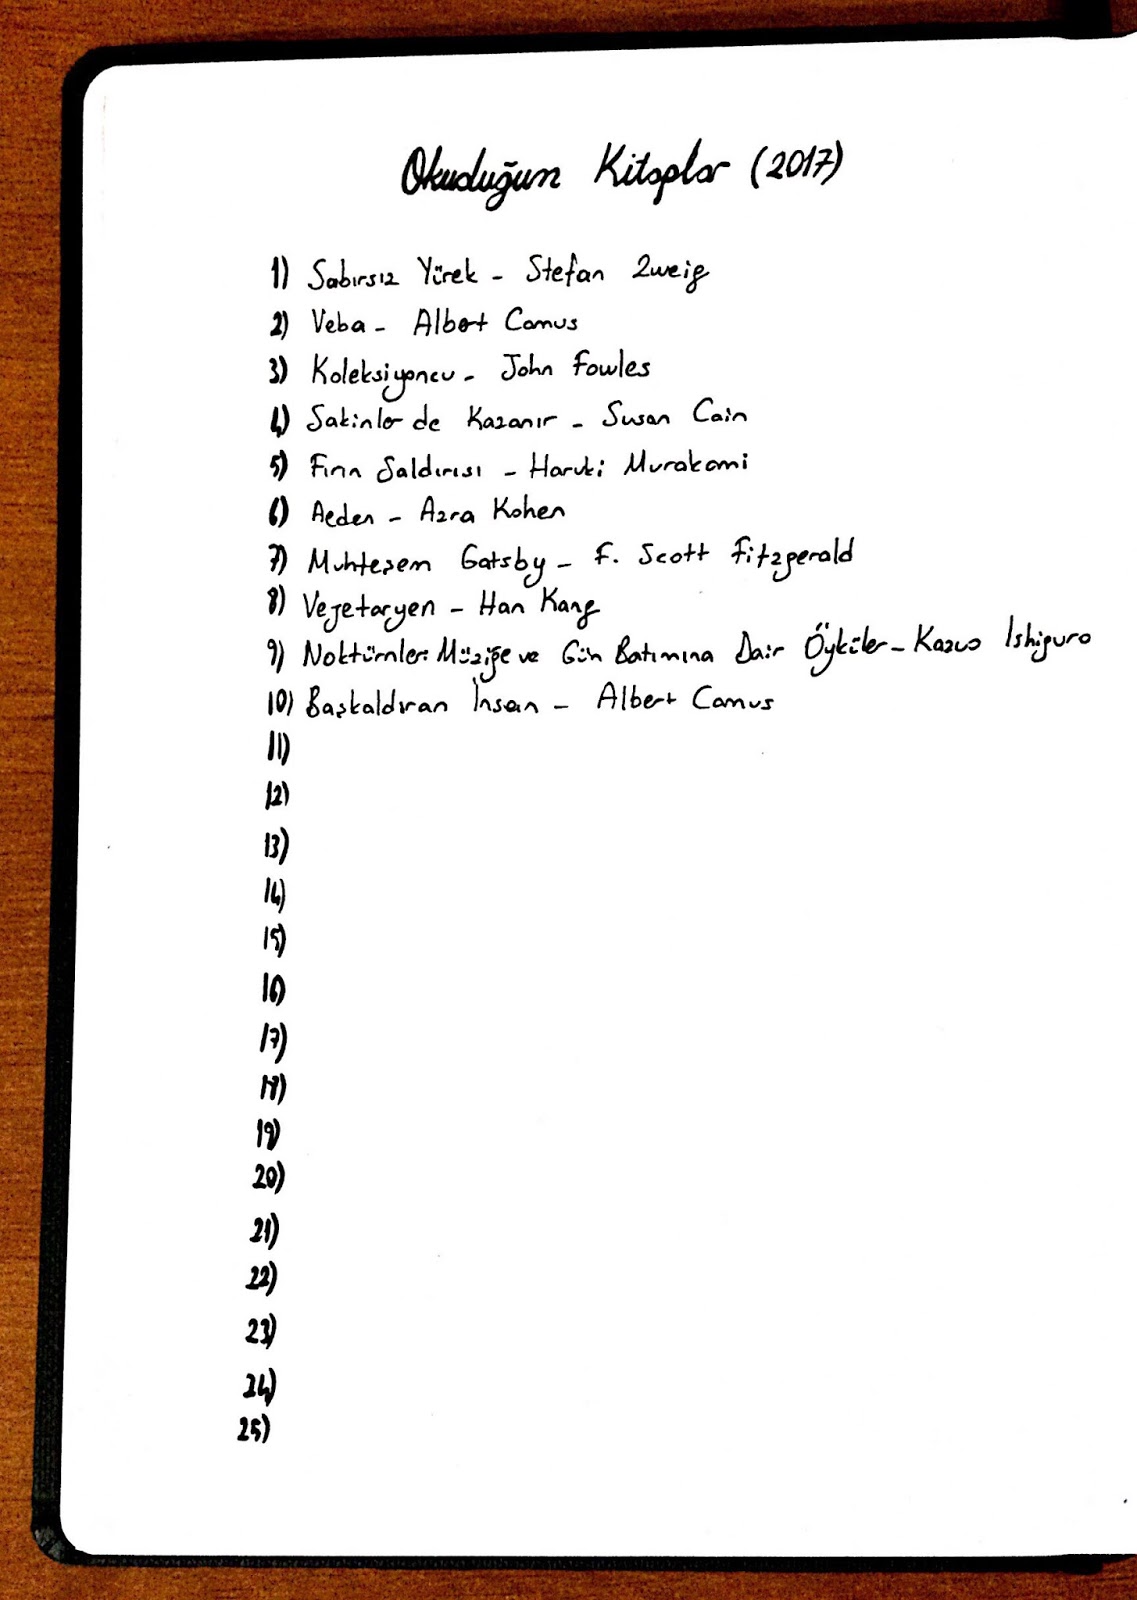 Okuduğum Kitaplar (2017)
1) Sabırsız Yürek - Stefan Zweig
2) Veba - Albert Camus
3) Koleksiyoncu - John Fowles
4) Sakinler de Kazanır - Susan Cain
5) Fırın Saldırısı - Haruki Murakami
6) Aeden - Azra Kohen
7) Muhteşem Gatsby - F. Scott Fitzgerald
8) Vejetaryen - Han Kang
9) Noktürnler: Müziğe ve Gün Batımına Dair Öyküler - Kazuo Ishiguro
10) Başkaldıran İnsan - Albert Camus
11)
12)
13)
14)
15)
16)
17)
18)
19)
20)
21)
22)
23)
24)
25)